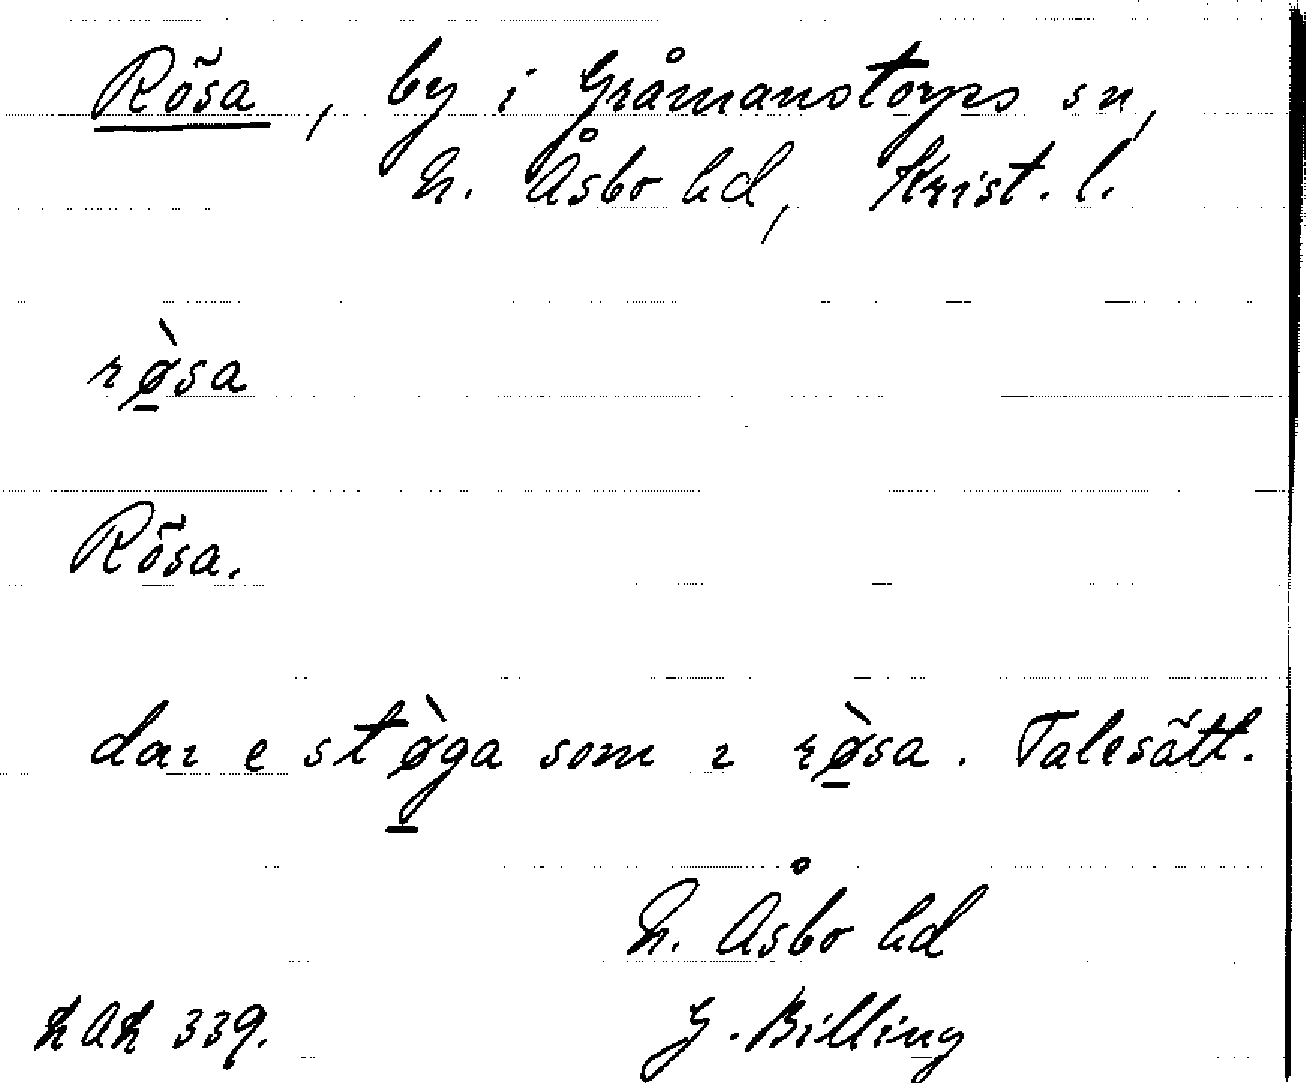 Rösa, by i Gråmanstorps sn,
N. Åsbo hd, Krist. l.
rø̱̀sa
Rösa.
dar e stø̱̀ga som ı rø̱̀sa. Talesätt.
N. Åsbo hd
G. Billing
339.